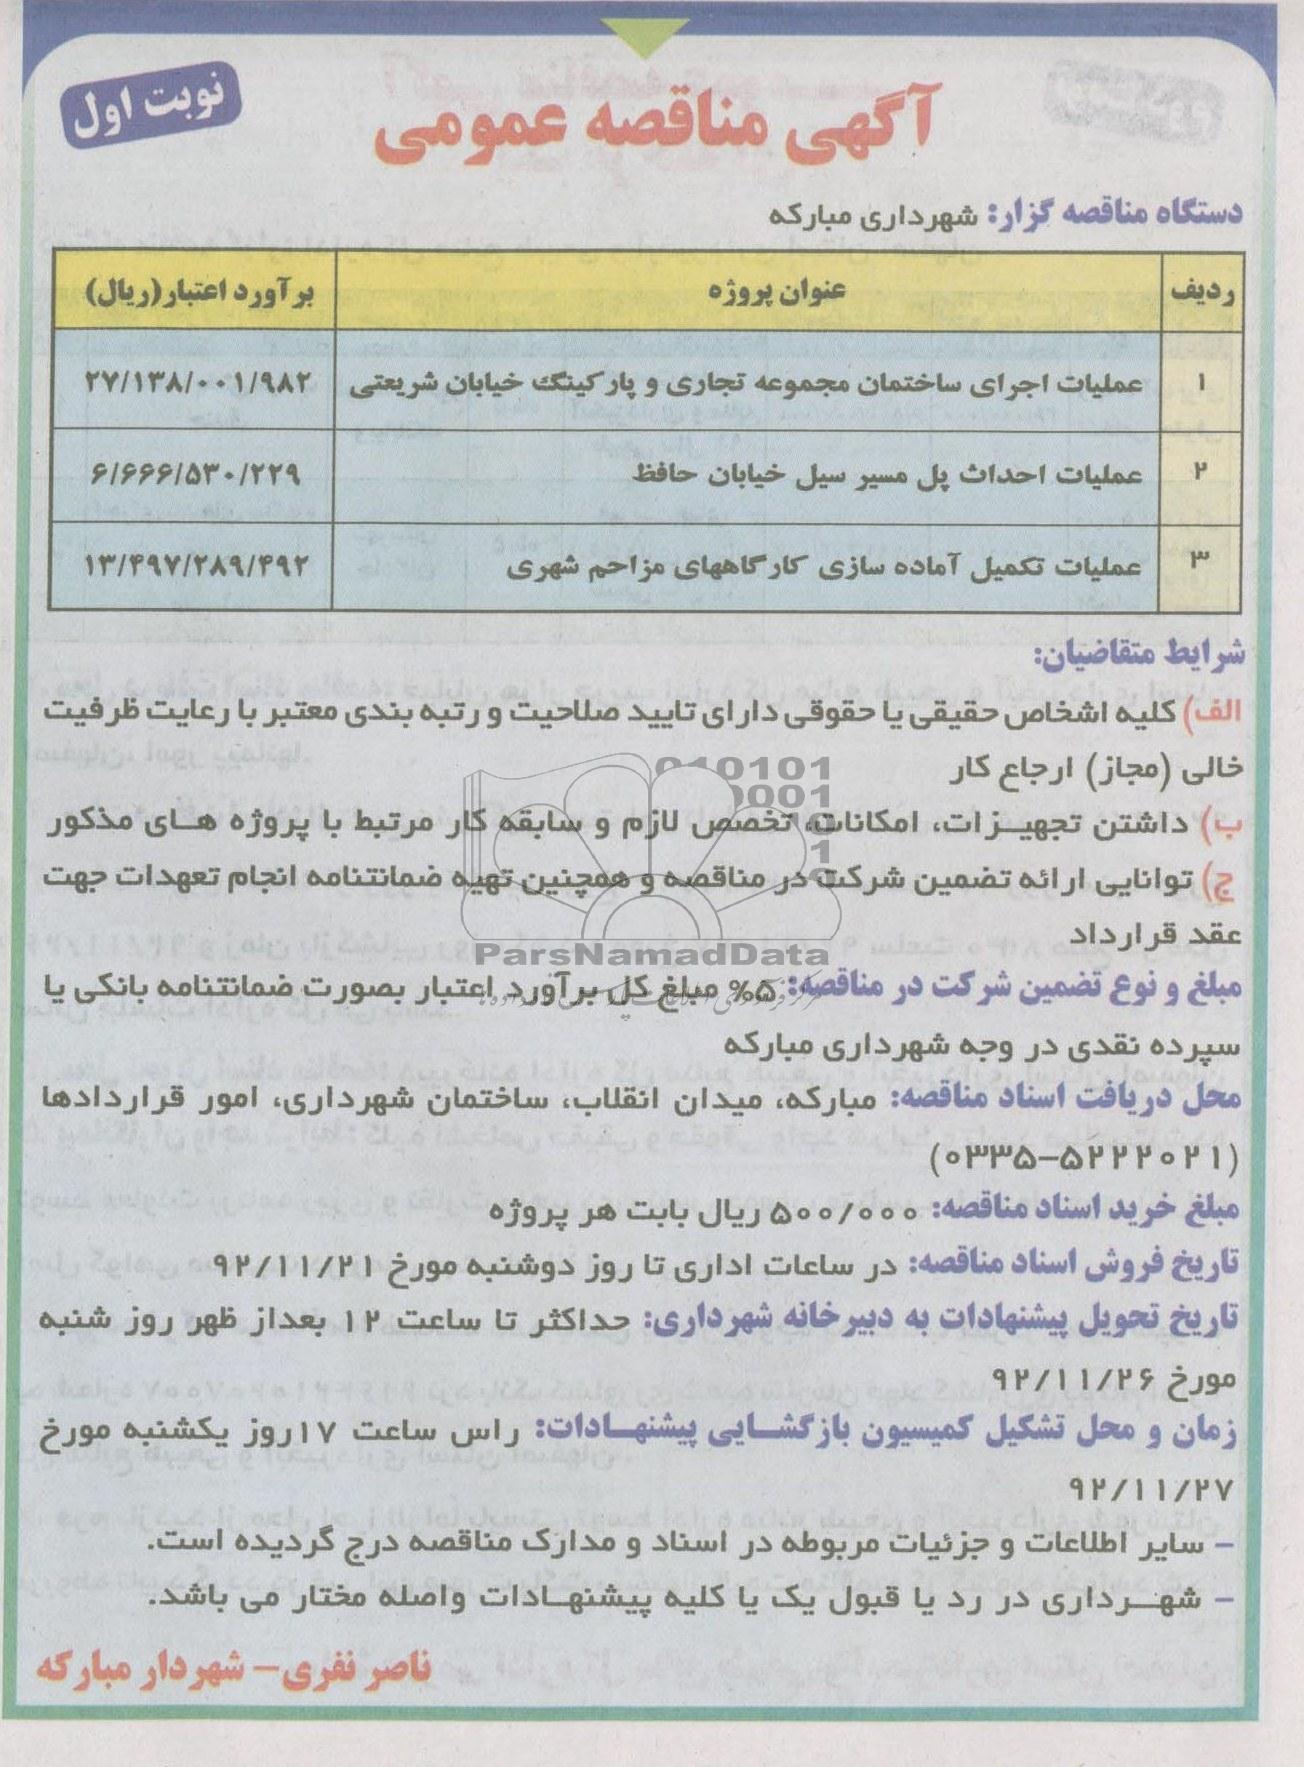 نوبت اول
آگهی مناقصه عمومی
دستگاه مناقصه گزار: شهرداری مبارکه
ردیف عنوان پروژه برآورد اعتبار(ریال)
۱ عملیات اجرای ساختمان مجموعه تجاری و پارکینگ خیابان شریعتی ۲۷/۱۳۸/۰۰۱/۹۸۲
۲ عملیات احداث پل مسیر سیل خیابان حافظ ۶/۶۶۶/۵۳۰/۲۲۹
۳ عملیات تکمیل آماده سازی کارگاههای مزاحم شهری ۱۳/۴۹۷/۲۸۹/۴۹۲
شرایط متقاضیان:
الف) کلیه اشخاص حقیقی یا حقوقی دارای تایید صلاحیت و رتبه بندی معتبر با رعایت ظرفیت
خالی (مجاز) ارجاع کار
ب) داشتن تجهیزات، امکانات، تخصص لازم و سابقه کار مرتبط با پروژه های مذکور
ج) توانایی ارائه تضمین شرکت در مناقصه و همچنین تهیه ضمانتنامه انجام تعهدات جهت
عقد قرارداد
ParsNamadData
مبلغ و نوع تضمین شرکت در مناقصه: ۵% مبلغ کل برآورد اعتبار بصورت ضمانتنامه بانکی یا
سپرده نقدی در وجه شهرداری مبارکه
محل دریافت اسناد مناقصه: مبارکه، میدان انقلاب، ساختمان شهرداری، امور قراردادها
(۰۳۳۵-۵۲۲۲۰۲۱)
مبلغ خرید اسناد مناقصه: ۵۰۰/۰۰۰ ریال بابت هر پروژه
تاریخ فروش اسناد مناقصه: در ساعات اداری تا روز دوشنبه مورخ ۹۲/۱۱/۲۱
تاریخ تحویل پیشنهادات به دبیرخانه شهرداری: حداکثر تا ساعت ۱۲ بعداز ظهر روز شنبه
مورخ ۹۲/۱۱/۲۶
زمان و محل تشکیل کمیسیون بازگشایی پیشنهادات: راس ساعت ۱۷روز یکشنبه مورخ
۹۲/۱۱/۲۷
- سایر اطلاعات و جزئیات مربوطه در اسناد و مدارک مناقصه درج گردیده است.
- شهرداری در رد یا قبول یک یا کلیه پیشنهادات واصله مختار می باشد.
ناصر نفری- شهردار مبارکه